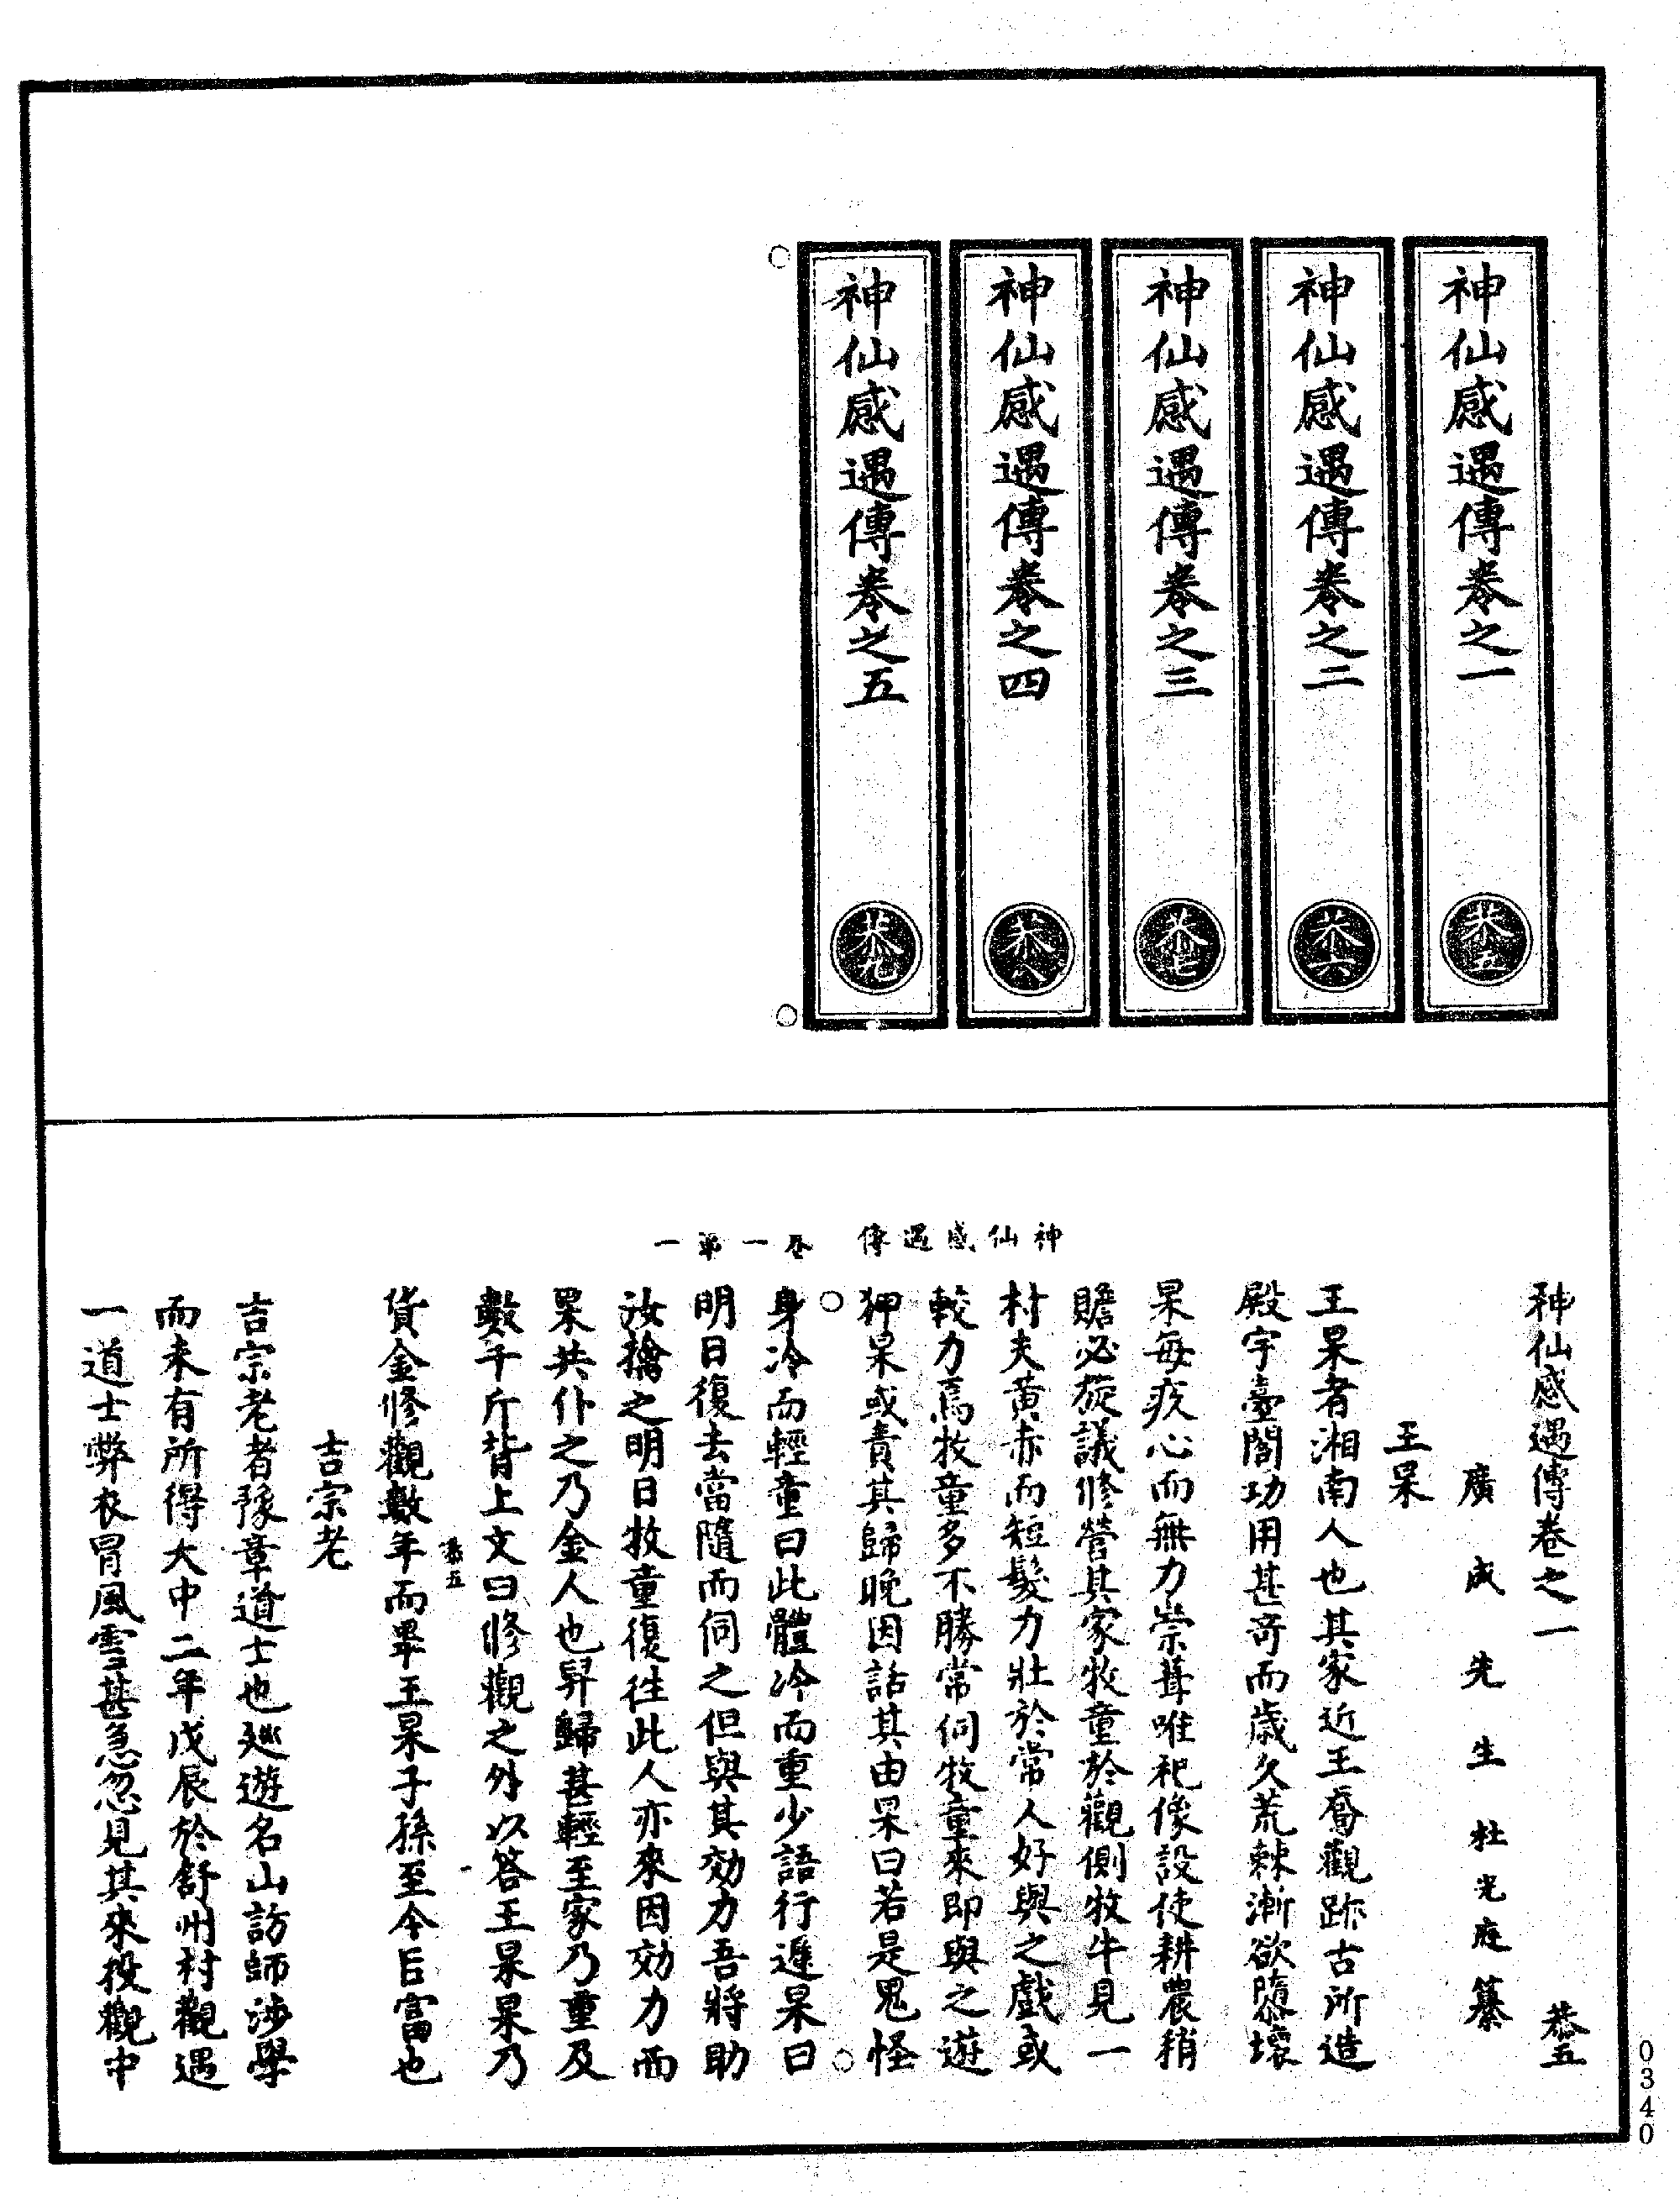 神仙感遇傳卷之一
恭五
神仙感遇傳卷之二
恭六
神仙感遇傳卷之三
恭七
神仙感遇傳卷之四
恭八
神仙感遇傳卷之五
恭九
神仙感遇傳卷之一 恭五
廣成先生杜光庭纂
王杲
王杲者湘南人也其家近王喬觀跡古所造
殿宇臺閣功用甚奇而歲久荒棘漸欲隳壞
杲每疚心而無力崇葺唯祀像設使耕農稍
贍必旋議修營其家牧童於觀側牧牛見一
村夫黃赤而短髮力壯於常人好與之戲或
較力焉牧童多不勝常伺牧童來即與之遊
狎杲或責其歸晚因話其由杲曰若是鬼怪
神仙感遇傳 卷一 第一
身冷而輕童曰此體冷而重少語行遲杲曰
明日復去當隨而伺之但與其効力吾將助
汝擒之明日牧童復往此人亦來因効力而
杲共仆之乃金人也舁歸甚輕至家乃重及
數千斤背上文曰修觀之外以答王杲杲乃
恭五
貨金修觀數年而畢王杲子孫至今巨富也
吉宗老
吉宗老者豫章道士也巡遊名山訪師涉學
而未有所得大中二年戊辰於舒州村觀遇
一道士弊衣冒風雪甚急忽見其來投觀中
0340